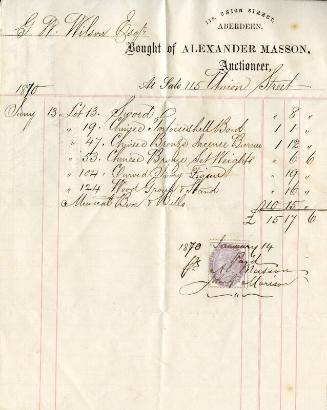 115, UNION STREET,
ABERDEEN.
G. W. Wilson Esqr
Bought of ALEXANDER MASSON,
Auctioneer,
At Sale 115 Union Street
1870
Jany 13 Lot 13. Sword " 8 "
" 19. Chinese Tortoiseshell Box 1 1 "
" 47. Chinese Bronze Incense Burner 1 12 "
" 53. Chinese Bronze Set Weights " 6 6
" 104. Carved Figure " 19 "
" 124 Wood Group & Stand " 16 "
Musical Box & Bells 10 15 "
£ 15 17 6
1870 January 14
Paid
A. Masson